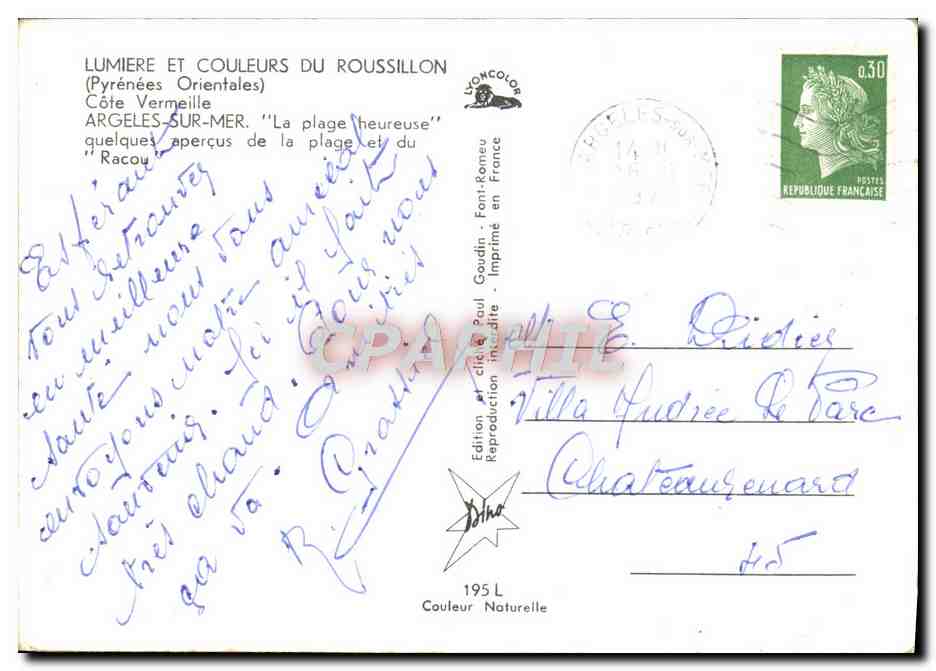 LUMIERE ET COULEURS DU ROUSSILLON
(Pyrénées Orientales)
Côte Vermeille
ARGELES-SUR-MER. "La plage heureuse"
quelques aperçus de la plage et du
"Racou"
Espérant
vous retrouver
en meilleure
santé nous vous
envoyons notre amical
souvenir. Ici il fait
très chaud. Pour nous
ça va. Amitiés
LYONCOLOR
Edition et cliché Paul Goudin - Font-Romeu
Reproduction interdite - Imprimé en France
Dino
195 L
Couleur Naturelle
ARGELES-SUR-M
14
0,30
POSTES
REPUBLIQUE FRANÇAISE
E. Didier
Villa Andrée Le Parc
Chateaurenard
45
CPAPHIL